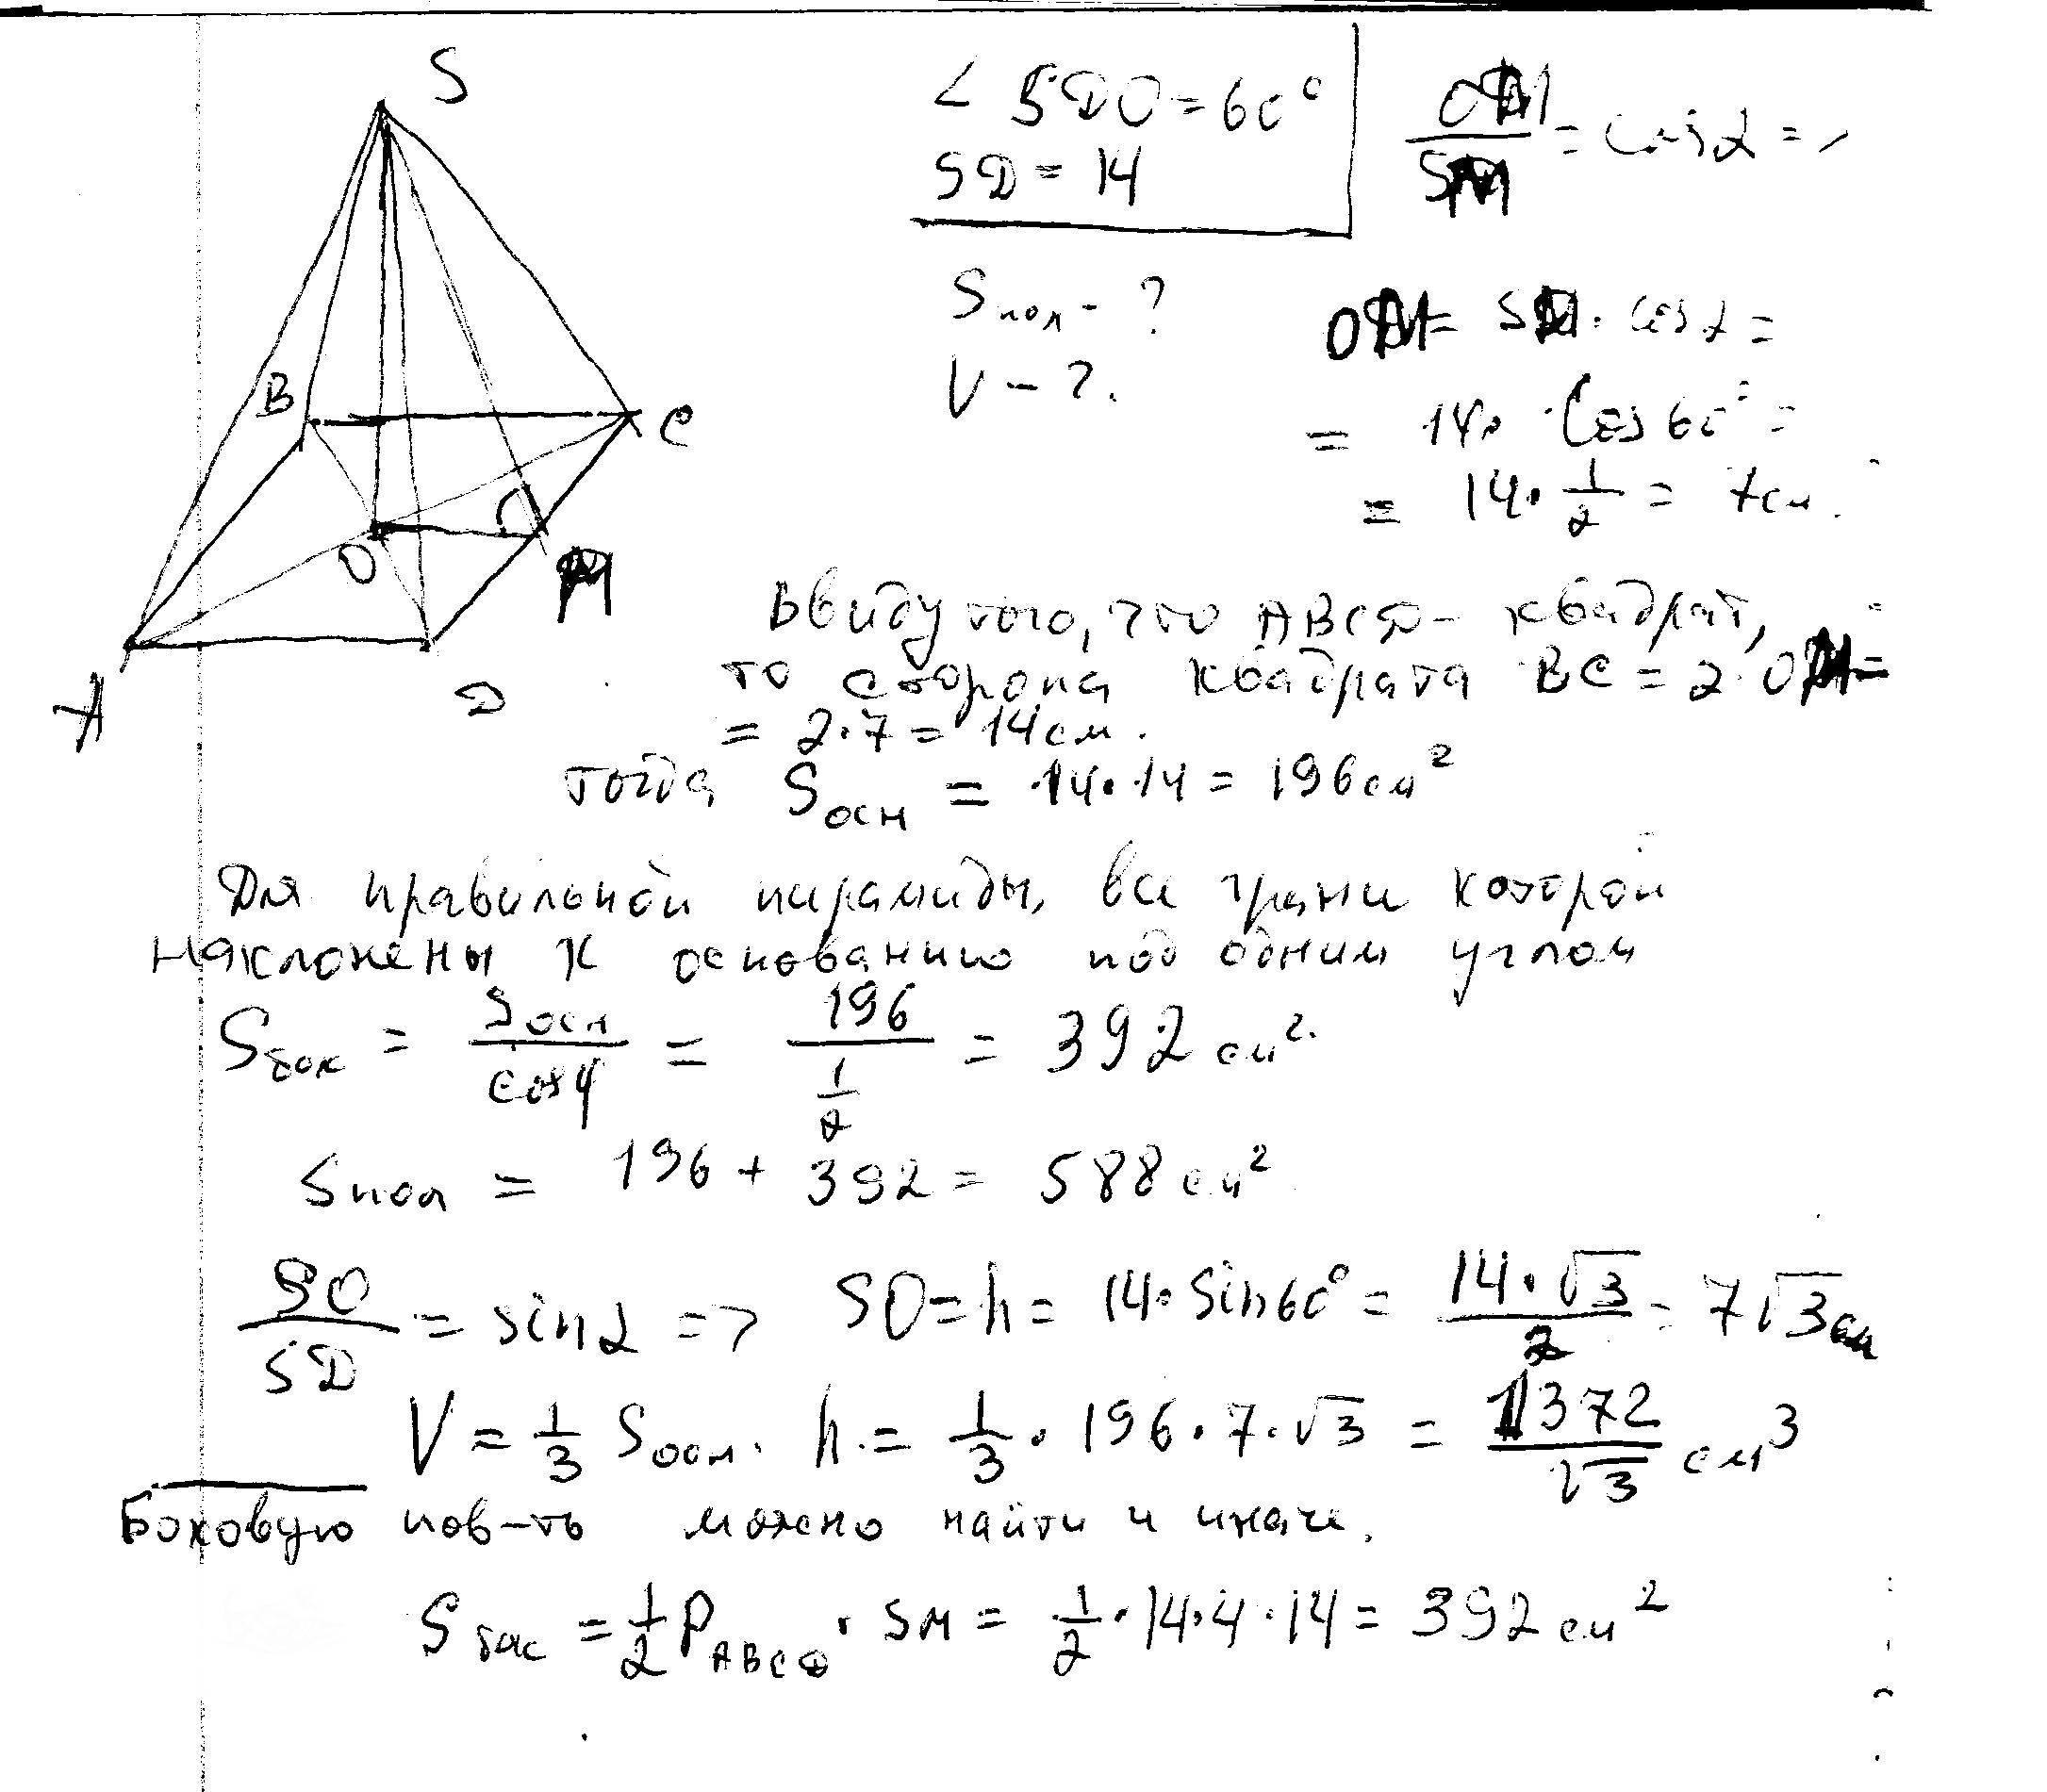 S
∠ SDO = 60°
SD = 14
OM/SM = cos α =
Sпол - ?
V - ?.
OM = SM · cos α =
= 14 · cos 60° =
= 14 · 1/2 = 7 см.
B
C
O
M
A
D
Ввиду того, что ABCD - квадрат,
то сторона квадрата BC = 2 · OM =
= 2·7 = 14 см.
тогда Sосн = 14·14 = 196 см²
Для правильной пирамиды, все грани которой
наклонены к основанию под одним углом
Sбок = Sосн/cos φ = 196/(1/2) = 392 см².
Sпол = 196 + 392 = 588 см²
SO/SD = sin α => SO = h = 14·sin 60° = 14·√3/2 = 7√3 см
V = 1/3 Sосн · h = 1/3 · 196 · 7 · √3 = 1372/√3 см³
Боковую пов-ть можно найти и иначе.
Sбок = 1/2 P ABCD · SM = 1/2 · 14·4 · 14 = 392 см²